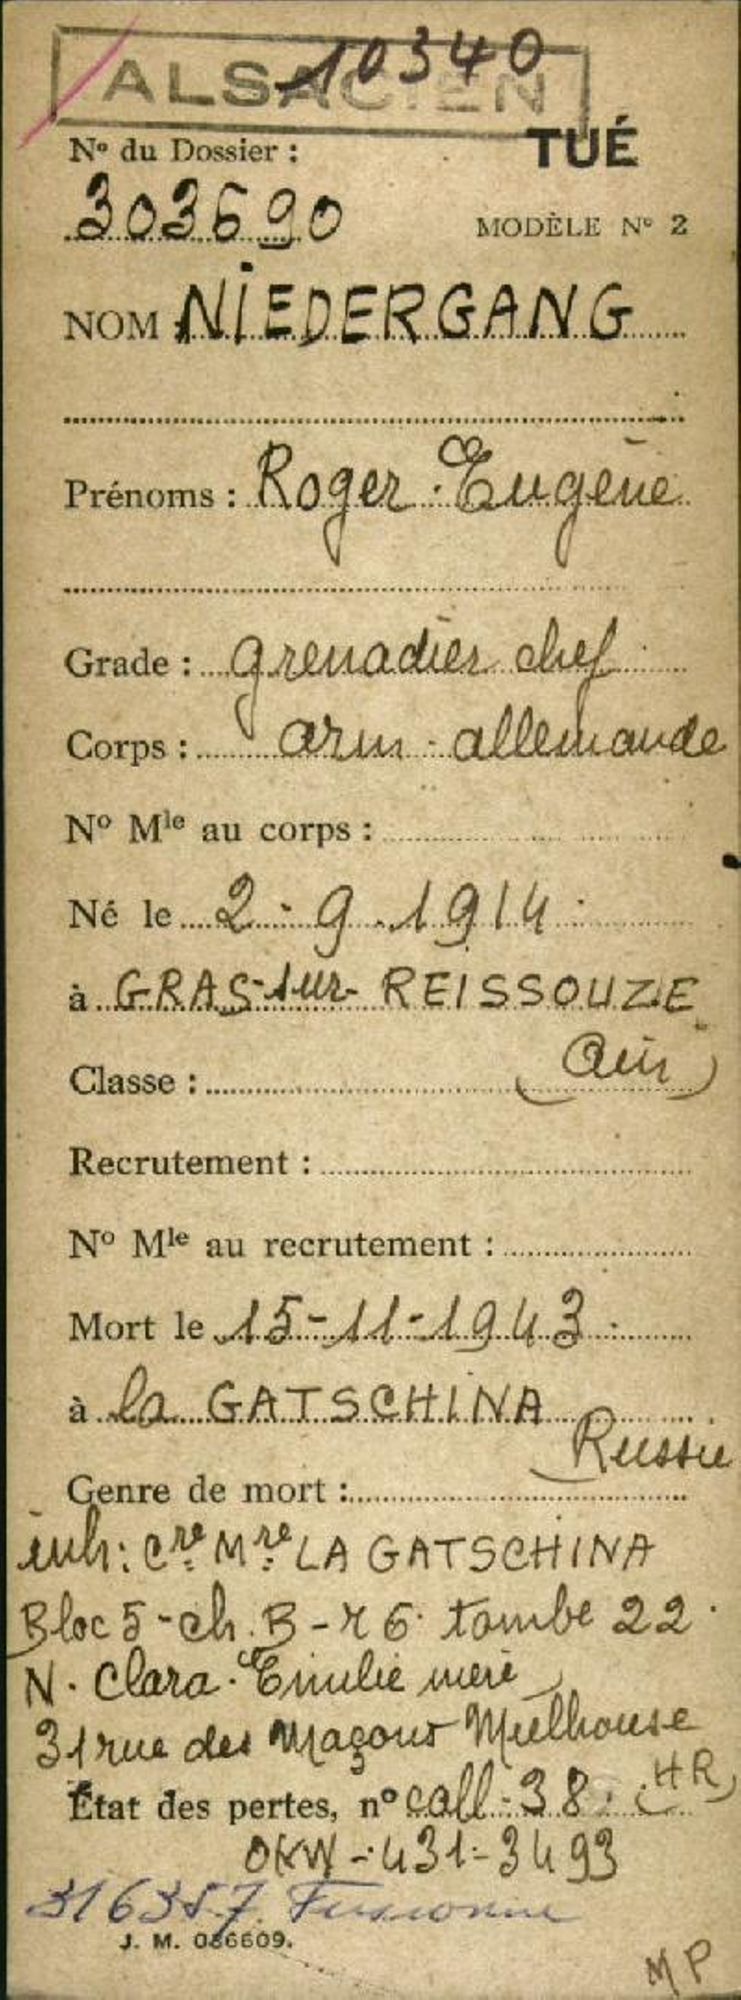 10340
ALSACIEN
Nº du Dossier :
TUÉ
303690
MODÈLE Nº 2
NOM NIEDERGANG
Prénoms : Roger Eugène
Grade : grenadier chef
Corps : arm. allemande
Nº Mle au corps :
Né le 2-9-1914
à GRAS-sur-REISSOUZE
(Ain)
Classe :
Recrutement :
Nº Mle au recrutement :
Mort le 15-11-1943
à la GATSCHINA
Russie
Genre de mort :
inh: Cre Mre LA GATSCHINA
Bloc 5 - ch. B - r 6. tombe 22.
N. Clara. Emilie mère
31 rue des Maçons Mulhouse
(HR)
État des pertes, nº coll-38.
OKW-431-3493
316357 Fusionné
J. M. 036609.
MP